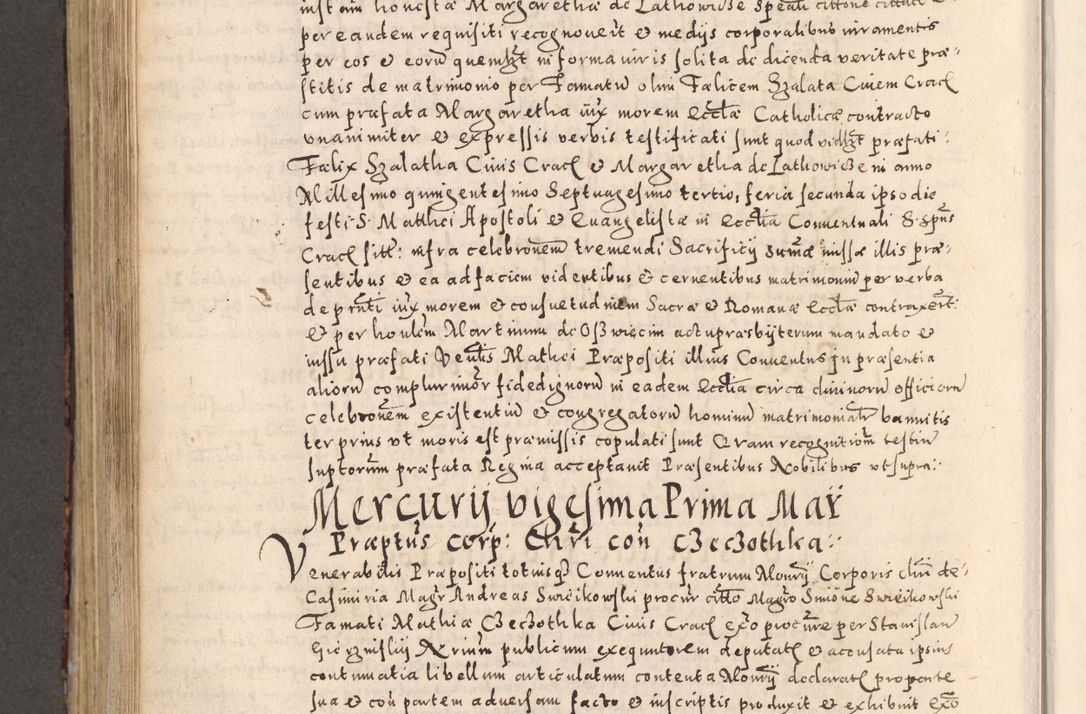 inst am honestæ Margarethæ de Lathowisse
per eandem requisiti recognoverit et medijs corporalibus iuramentis
per eos et eorũ quemlt in forma iuris solita de dicenda veritate præ-
stitis de matrimonio per Famatũ olim Fælicem Szalata Civem Crac
cum præfata Margaretha iux morem Ecctæ Catholicæ contracto
unanimiter et expressis verbis testificati sunt quod videlt præfati:
Fælix Szalatha Civis Crac et Margaretha de Lathowicze in anno
Millesimo quingentesimo Septuagesimo tertio, feria secunda ipso die
festi S. Mathei Apostoli et Evangelistæ in Ecctia Conventuali S. Spũs
Crac sitt: infra celebronem tremendi Sacrificij sumæ missæ illis præ-
sentibus et ea ad faciem videntibus et cernentibus matrimoniũ per verba
de pñti iux morem et consuetudinem Sacræ et Romanæ Ecctæ contraxert:
et per honlem Martinum de Oswięcim actu præsbijterum mandato et
iussu præfati Venlis Mathei Præpositi illius Conventus in præsentia
aliorũ complurimor fidedignorũ in eadem Ecctia circa divinorũ officiorũ
celebronem existentiũ et congregatorũ hominũ matrimonialr bannitis
ter prius ut moris est præmissis copulati sunt Qram recognitiom testiũ
suptorum præfata Regina acceptavit Præsentibus Nobilibus ut supra:
Mercurij vigesima Prima Maÿ
Præptus Corp: Chri coñ Czeczothka:
Venerabilis Præpositi totiusq Conventus fratrum Monrÿ Corporis Chri de
Casimiria Magr Andreas Swieikowski procur citto Magro Simone Swieikowski
Famati Mathiæ Czeczothka Civis Crac exo procure per Stanislaũ
Nrium publicum exequutorem deputat et accusata ipsius
continuatia libellum articulatum contenta Monrÿ declarat proponte
sua et coñ partem adversam facto et inscriptis produxit et exhibuit exo